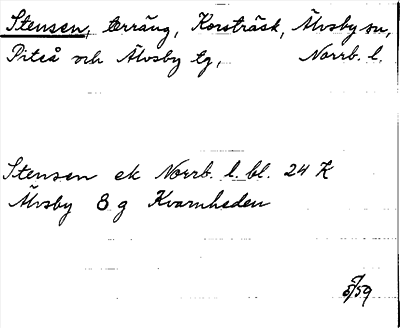 Stensen, terräng, Korsträsk, Älvsby sn,
Piteå och Älvsby tg, Norrb. l.
Stensen ek Norrb. l. bl. 24 K
Älvsby 8 g Kvarnheden
5/59